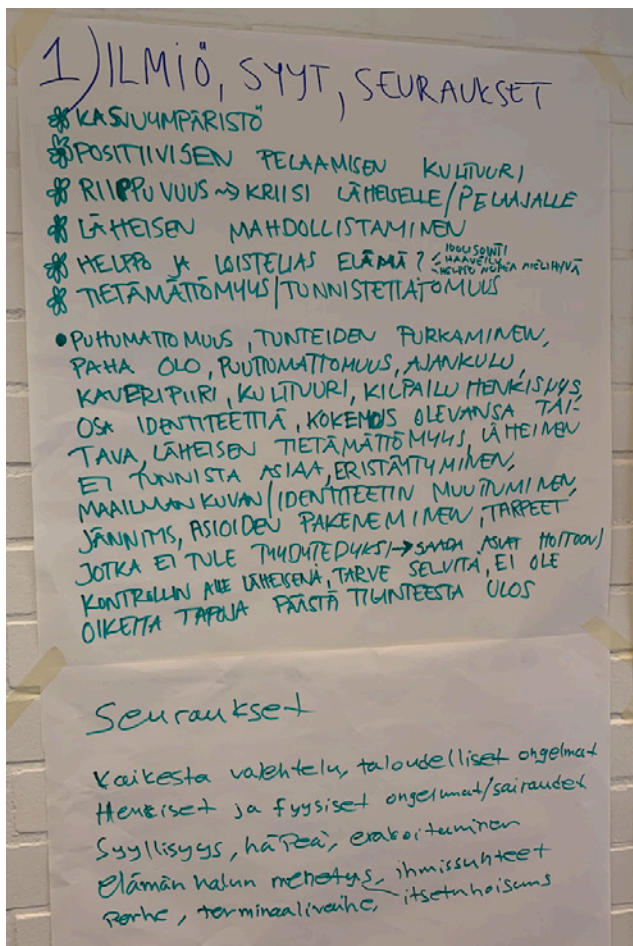 1) ILMIÖ, SYYT, SEURAUKSET
* KASVUYMPÄRISTÖ
* POSITIIVISEN PELAAMISEN KULTUURI
* RIIPPUVUUS ~> KRIISI LÄHEISELLE/PELAAJALLE
* LÄHEISEN MAHDOLLISTAMINEN
* HELPPO JA LOISTELIAS ELÄMÄ? < IDOLISOINTI
HAAVEILU
HELPPO NOPEA MIELIHYVÄ
* TIETÄMÄTTÖMYYS/TUNNISTETTATOMUUS
• PUHUMATTOMUUS, TUNTEIDEN PURKAMINEN,
PAHA OLO, PUUTTUMATTOMUUS, AJANKULU,
KAVERIPIIRI, KULTTUURI, KILPAILUHENKISYYS,
OSA IDENTITEETTIÄ, KOKEMUS OLEVANSA TAI-
TAVA, LÄHEISEN TIETÄMÄTTÖMYYS, LÄHEINEN
EI TUNNISTA ASIAA, ERISTÄYTYMINEN,
MAAILMANKUVAN/IDENTITEETIN MUUTTUMINEN,
JÄNNITYS, ASIOIDEN PAKENEMINEN, TARPEET
JOTKA EI TULE TYYDYTETYKSI → SAADA ASIAT HOITOON/
KONTROLLIN ALLE LÄHEISENÄ, TARVE SELVITÄ, EI OLE
OIKEITA TAPOJA PÄÄSTÄ TILANTEESTA ULOS
Seuraukset
Kaikesta valehtelu, taloudelliset ongelmat
Henkiset ja fyysiset ongelmat/sairaudet
Syyllisyys, häpeä, erakoituminen
Elämän halun menetys, ihmissuhteet
Perhe, terminaalivaihe, itsetuhoisuus